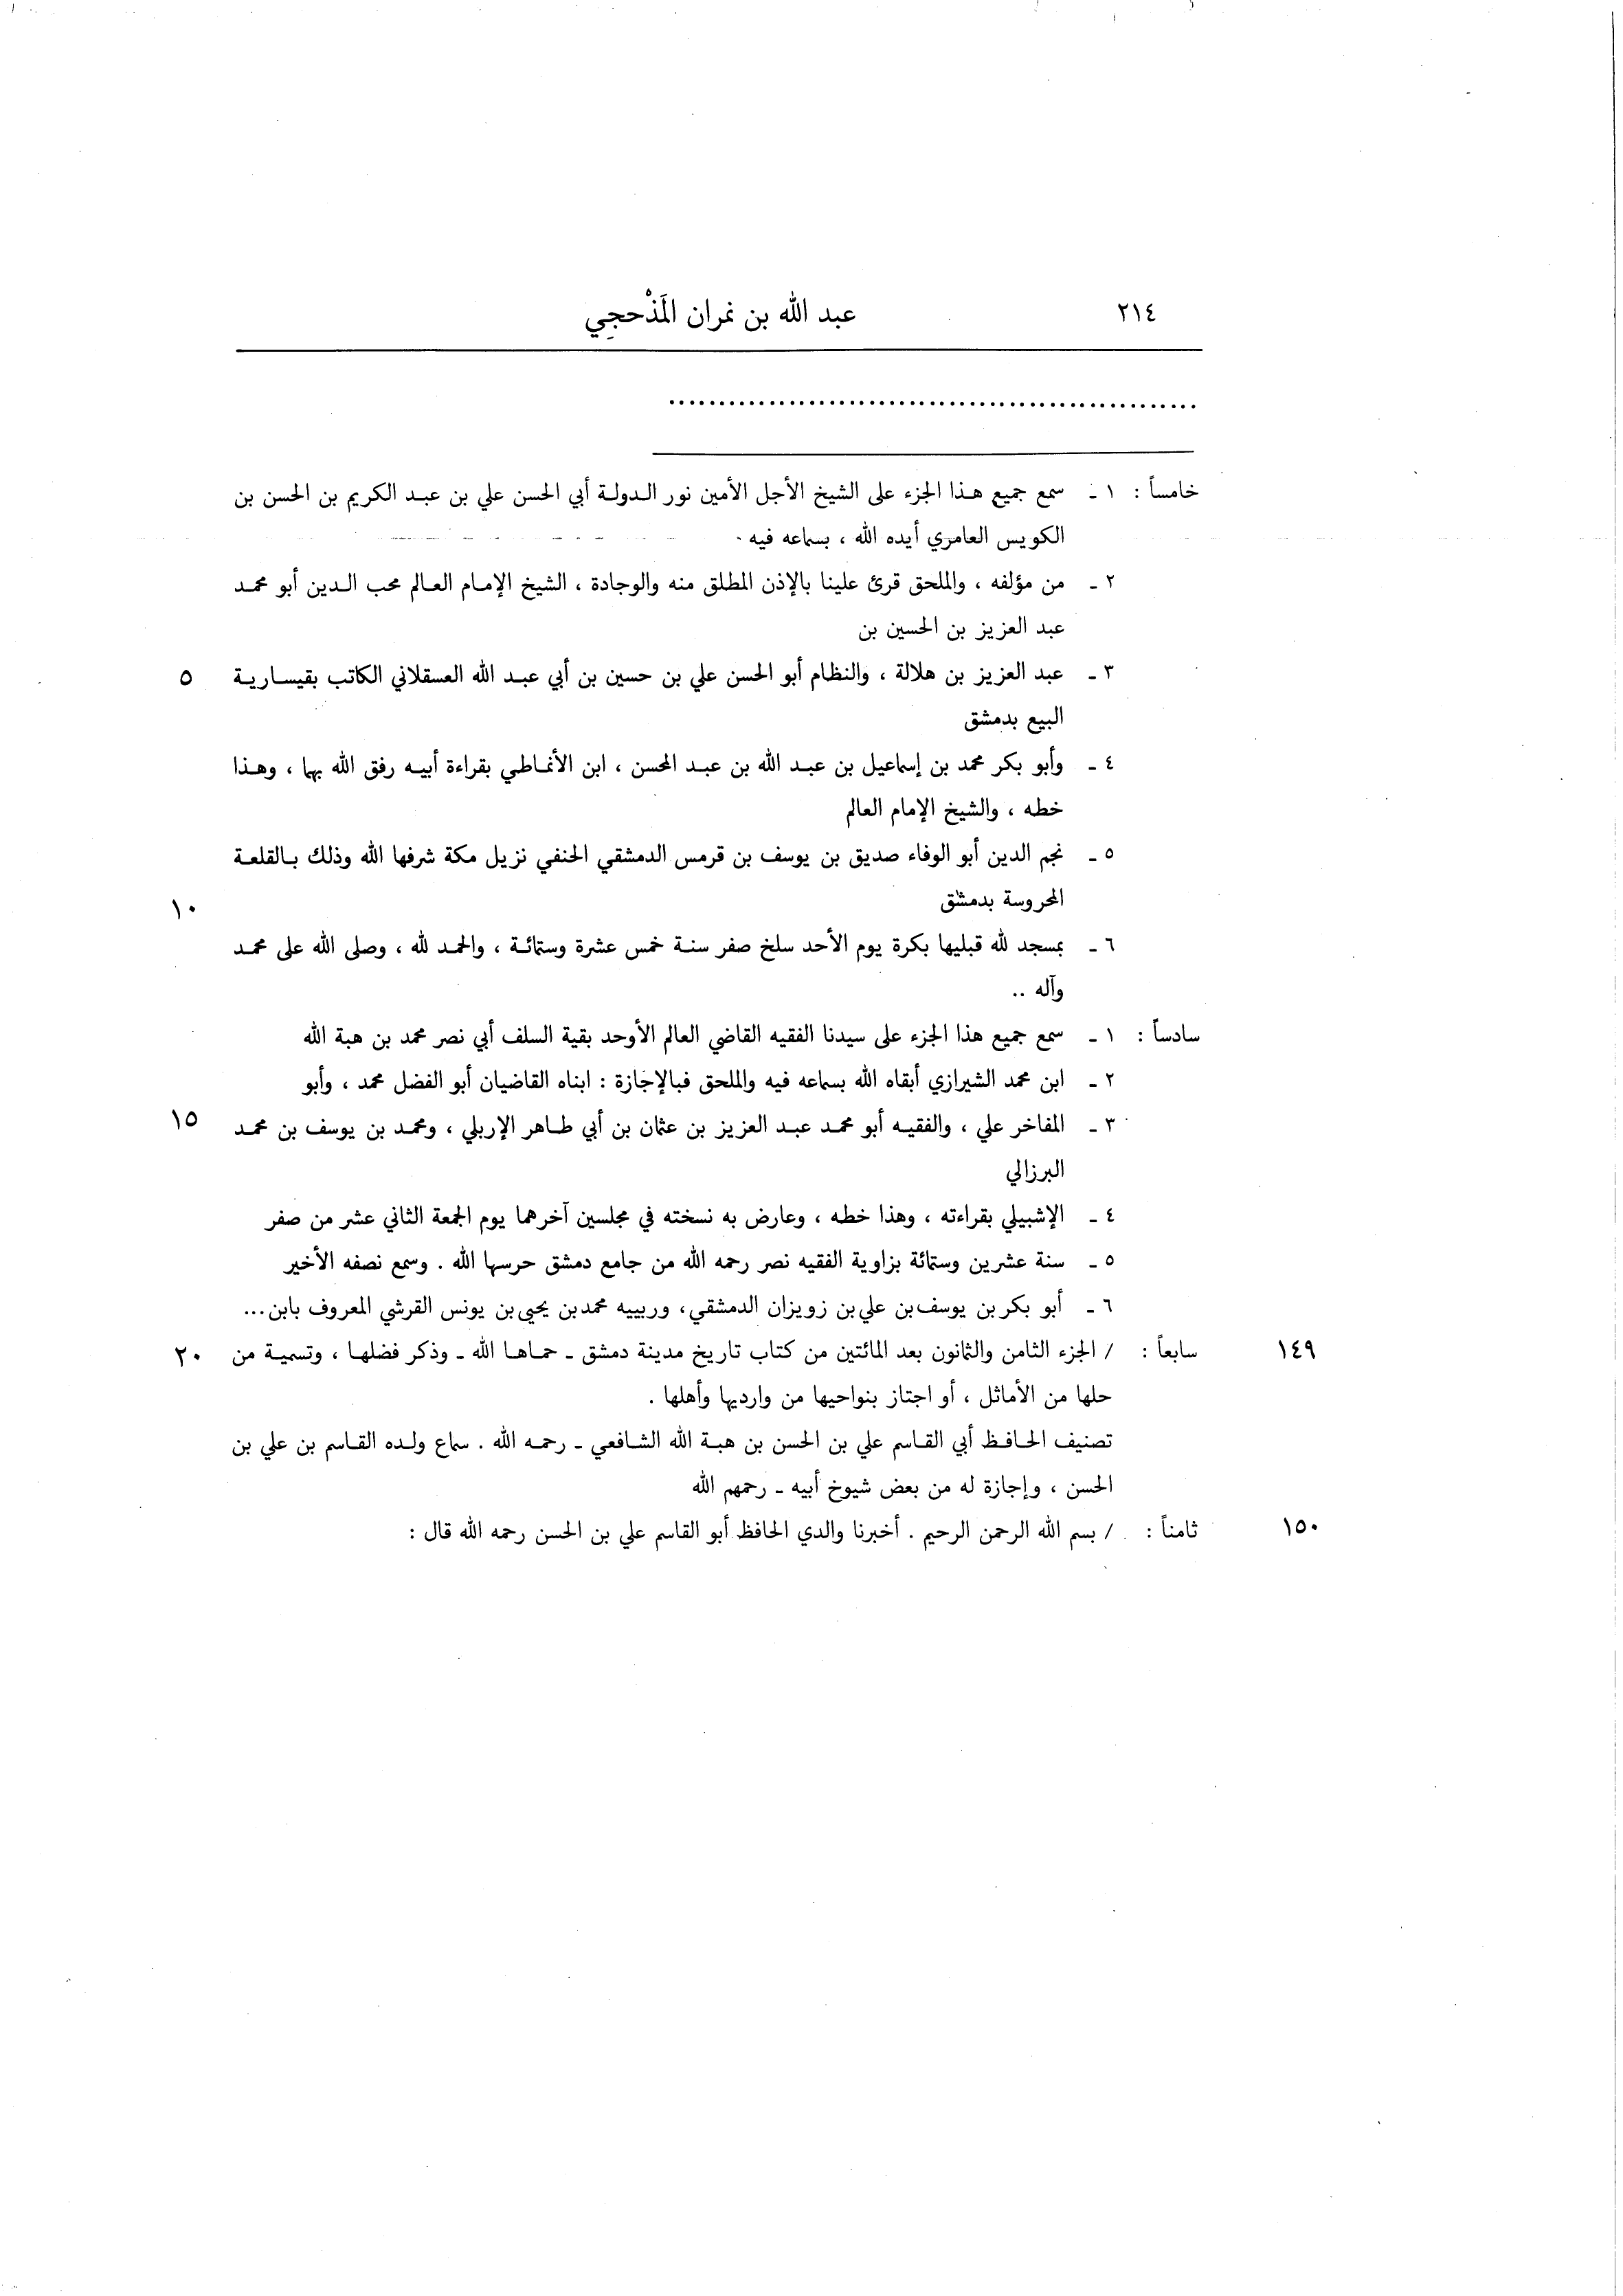 ٢١٤ عبد الله بن نمران المَذْحجِي
..........................................................
خامساً : ١ ـ سمع جميع هذا الجزء على الشيخ الأجل الأمين نور الدولة أبي الحسن علي بن عبد الكريم بن الحسن بن
الكويس العامري أيده الله ، بسماعه فيه .
٢ ـ من مؤلفه ، والملحق قرئ علينا بالإذن المطلق منه والوجادة ، الشيخ الإمام العالم محب الدين أبو محمد
عبد العزيز بن الحسين بن
٣ ـ عبد العزيز بن هلالة ، والنظام أبو الحسن علي بن حسين بن أبي عبد الله العسقلاني الكاتب بقيسارية ٥
البيع بدمشق
٤ ـ وأبو بكر محمد بن إسماعيل بن عبد الله بن عبد المحسن ، ابن الأنماطي بقراءة أبيه رفق الله بهما ، وهذا
خطه ، والشيخ الإمام العالم
٥ ـ نجم الدين أبو الوفاء صديق بن يوسف بن قرمس الدمشقي الحنفي نزيل مكة شرفها الله وذلك بالقلعة
المحروسة بدمشق ١٠
٦ ـ بمسجد لله قبليها بكرة يوم الأحد سلخ صفر سنة خمس عشرة وستمائة ، والحمد لله ، وصلى الله على محمد
وآله ..
سادساً : ١ ـ سمع جميع هذا الجزء على سيدنا الفقيه القاضي العالم الأوحد بقية السلف أبي نصر محمد بن هبة الله
٢ ـ ابن محمد الشيرازي أبقاه الله بسماعه فيه والملحق فبالإجازة : ابناه القاضيان أبو الفضل محمد ، وأبو
٣ ـ المفاخر علي ، والفقيه أبو محمد عبد العزيز بن عثمان بن أبي طاهر الإربلي ، ومحمد بن يوسف بن محمد ١٥
البرزالي
٤ ـ الإشبيلي بقراءته ، وهذا خطه ، وعارض به نسخته في مجلسين آخرهما يوم الجمعة الثاني عشر من صفر
٥ ـ سنة عشرين وستمائة بزاوية الفقيه نصر رحمه الله من جامع دمشق حرسها الله . وسمع نصفه الأخير
٦ ـ أبو بكر بن يوسف بن علي بن زويزان الدمشقي، وربيبه محمد بن يحيى بن يونس القرشي المعروف بابن ...
١٤٩ سابعاً : / الجزء الثامن والثمانون بعد المائتين من كتاب تاريخ مدينة دمشق ـ حماها الله ـ وذكر فضلها ، وتسمية من ٢٠
حلها من الأماثل ، أو اجتاز بنواحيها من وارديها وأهلها .
تصنيف الحافظ أبي القاسم علي بن الحسن بن هبة الله الشافعي ـ رحمه الله . سماع ولده القاسم بن علي بن
الحسن ، وإجازة له من بعض شيوخ أبيه ـ رحمهم الله
١٥٠ ثامناً : / بسم الله الرحمن الرحيم . أخبرنا والدي الحافظ أبو القاسم علي بن الحسن رحمه الله قال :